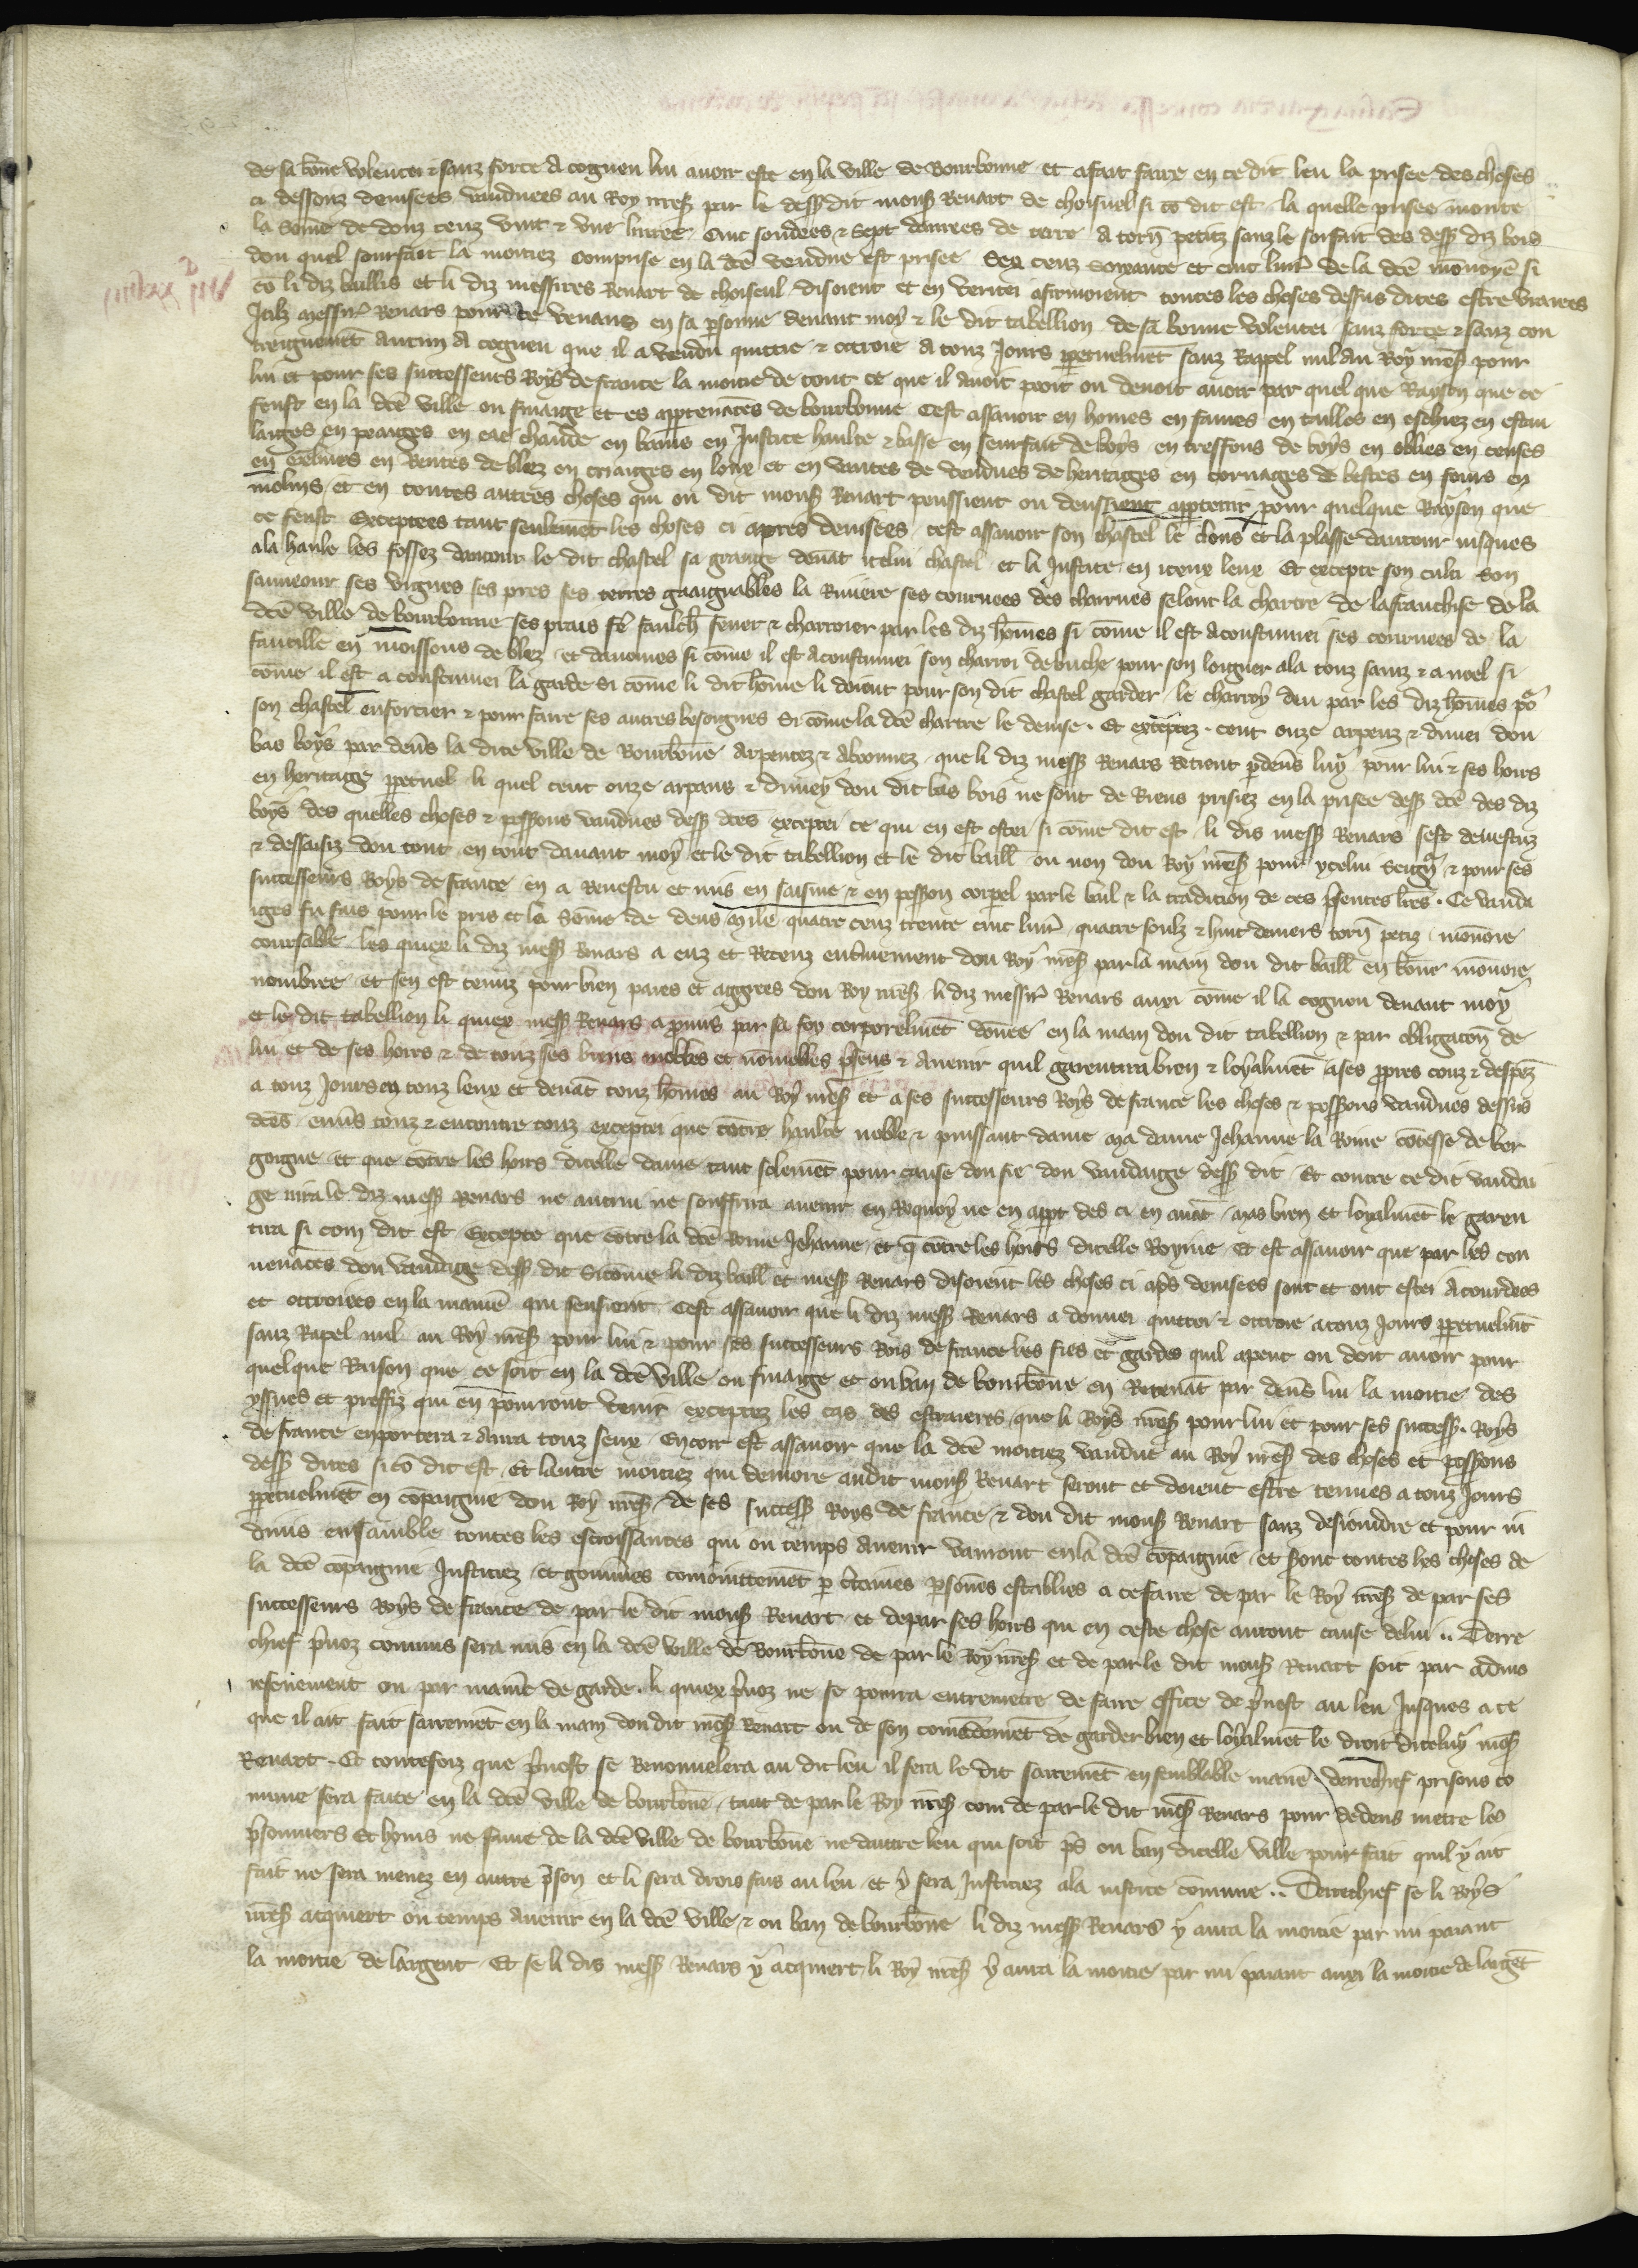 de sa bone volentei & sanz force a cogneu lui avoir este en la ville de Bourbonne et a fait faire en ce dit leu la prisee des choses
ci dessouz devisees vandues au Roy nres par le dess dit mons Renart de choiseul si co dit est la quelle prisee monte
la some de douz cenz vint & une livree cinc soudees & sept danrees de terre a torn petitz sanz le sorfait des dess diz bois
dou quel sourfait la moitiez comprise en la dce vendue est prisee sex cenz soixante et cinc livr de la dce monoye si
co li diz baillis et li diz messires Renart de choiseul disoient et en veritei afirmoient toutes les choses dessus dites estre vraiees
Icilz messir Renars pour ce venans en sa psonne devant moy & le dit tabellion de sa bonne volentei sanz force & sanz con
treignemet aucun a cogneu que il a vendu quittie & ottroie a touz jours ppetuelmet sanz rappel nul au Roy nres pour
lui et pour ses successeurs Roys de france la moitie de tout ce que il avoit pooit ou devoit avoir par quel que raison que ce
feust en la dce ville ou finaige et es apptenaces de bourbonne Cest assavoir en homes en fames en tailles en eschiez en estau
laiges en peaiges en eae chaude en bains en justice haulte & basse en seurfait de boys en tresfons de boys en oblies en censes
en gelines en rentes de blez en criaiges en loux et en vantes de vendues de heritaiges en cornages de bestes en fours en
molins et en toutes autres choses qui ou dit mons Renart poussient ou deussient apptenir pour quelque rayson que
ce feust Exceptees tant seulemet les choses ci apres devisees cest assavoir son chastel le clous et la plasse dautour jusques
a la haule les fossez dautour le dit chastel sa grange devat icelui chastel et la justice en iceux leux Et excepte son culti son
sauveour ses vignes ses pres ses terres gaaignables la riviere ses corvees des charrues selont la chartre de la franchise de la
dce ville de bourbonne ses prais fe faulch fener & charroier par les diz homes si come il est acoustumei ses corvees de la
faucille en moissons de blez et davoines si come il est acoustumei son charroi de buche pour son loiguier a la touz sainz & a noel si
come il est acoustumei la garde si come li dit home li doient pour son dit chastel garder le charroy deu par les diz homes po
son chastel enforcier & pour faire ses autres besoignes si come la dce chartre le devise. Et exceptez cent onze arpenz & dimei dou
bas boys par devs la dite ville de Bourbone arpentez & abonnez que li diz mess Renars retient pdevs luy pour lui & ses hoirs
en heritaige ppetuel li quel cent onze arpans & dimey dou dit bas bois ne sont de riens prisiez en la prisee dess dce des diz
boys des quelles choses & possons vandues dess dces exceptei ce qui en est ostei si come dit est li dis mess Renars sest devestuz
& dessaisiz dou tout en tout davant moy et le dit tabellion et le dit baill ou non dou Roy nres pour ycelui seign & pour ses
successeurs Roys de france en a revestu et mis en saisine & en posson corpel par le bail & la tradicion de ces psentes lres. Ce vanda
iges fu fais pour le pris et la some de deus mile quatre cenz trente cinc livr quatre soulz & huit deniers torn petiz monoie
coursable les quiex li diz mess Renars a euz et receuz entierement dou Roy nres par la main dou dit baill en bone monoie
nombree et sen est tenuz pour bien paies et aggrees dou Roy nres li diz messir Renars auxi come il la cogneu devant moy
et le dit tabellion li quiex mess Renars a pmis par sa foy corporelmet donee en la main dou dit tabellion & par obligacon de
lui et de ses hoirs & de touz ses biens mobles et nomobles psens & avenir quil garentira bien & loyalmet a ses ppres couz & despez
a touz jours en touz leux et devat touz homes au Roy nres et a ses successeurs Roys de france les choses & possons vandues dessus
dces envs touz & encontre touz exceptei que cotre haulte noble & puissant dame ma dame Jehanne la Roine cotesse de bor
goigne et que cotre les hoirs dicelle dame tant solemet pour cause dou fie dou vandaige dess dit Et contre ce dit vandai
ge nira le diz mess Renars ne autrui ne souffrira avenir en requoy ne en appt des ci en avat mas bien et loyalmet le garen
tira si com dit est Excepte que cotre la dce Roine Jehanne et q cotre les hoirs dicelle Royine Et est assavoir que par les con
venaces dou vandaige dess dit si come li diz baill et mess Renars disoient les choses ci aps devisees sont et ont estei acourdees
et ottroiees en la manie qui sensient Cest assavoir que li diz mess Renars a donnei quittei & ottroie a touz jours ppetuelmt
sanz rapel nul au Roy nres pour lui & pour ses successeurs Rois de france les fies et gardes quil apent ou doit avoir pour
quelque raison que ce soit en la dce ville ou finaige et ou ban de bourbone en retenat par devs lui la moitie des
yssues et proffiz qui en pourront venir exceptez les cas des estraieres que li Roys nres pour lui et pour ses success. Roys
de france enportera & aura touz seux Encor est assavoir que la dce moitiez vandue au Roy nres des choses et possons
dess dites si co dit est Et lautre moitiez qui demore audit mons Renart seront et doient estre tenues a touz jours
ppetuelmet en copaignie dou Roy nres de ses success Roys de france & dou dit mons Renart sanz desjoindre et pour in
divis ensamble toutes les escroissances qui ou temps avenir vanront en la dce copaignie et sront toutes les choses de
la dce copaignie justiciez et govnees comoinitemet p ctaines psones establies a ce faire de par le Roy nres de par ses
successeurs Roys de france de par le dit mons Renart et de par ses hoirs qui en ceste chose auront cause de lui .. Derre
chief pvoz comuns sera mis en la dce ville de Bourbone de par le Roy nres et de par le dit mons Renart soit par admo
nesenement ou par manie de garde. li quiex pvoz ne se pourra entremetre de faire office de pvost au leu jusques a ce
que il ait fait sairremet en la main dou dit mes Renart ou de son comedemet de garder bien et loyalmet le droit diceluy mes
Renart. Et toutesfoiz que pvost se renouvelera au dit leu il fera le dit sairremet en semblable manie derrechief prisons co
mune sera faite en la dce ville de bourbone tant de par le Roy nres com de par le dit mes Renars pour dedens metre les
psonniers Et homs ne fame de la dce ville de bourbone ne dautre leu qui soit ps ou ban dicelle ville pour fait quil y ait
fait ne sera menez en autre pson et li sera drois fais au leu et y sera justiciez a la justice comune .. Derrechief se li Roys
nres acquiert ou temps avenir en la dce ville & ou ban de bourbone li diz mess Renars y aura la moitie par mi paiant
la moitie de largent Et se li dis mess Renars y acquiert li Roy nres y aura la moitie par mi paiant auxi la moitie de larget